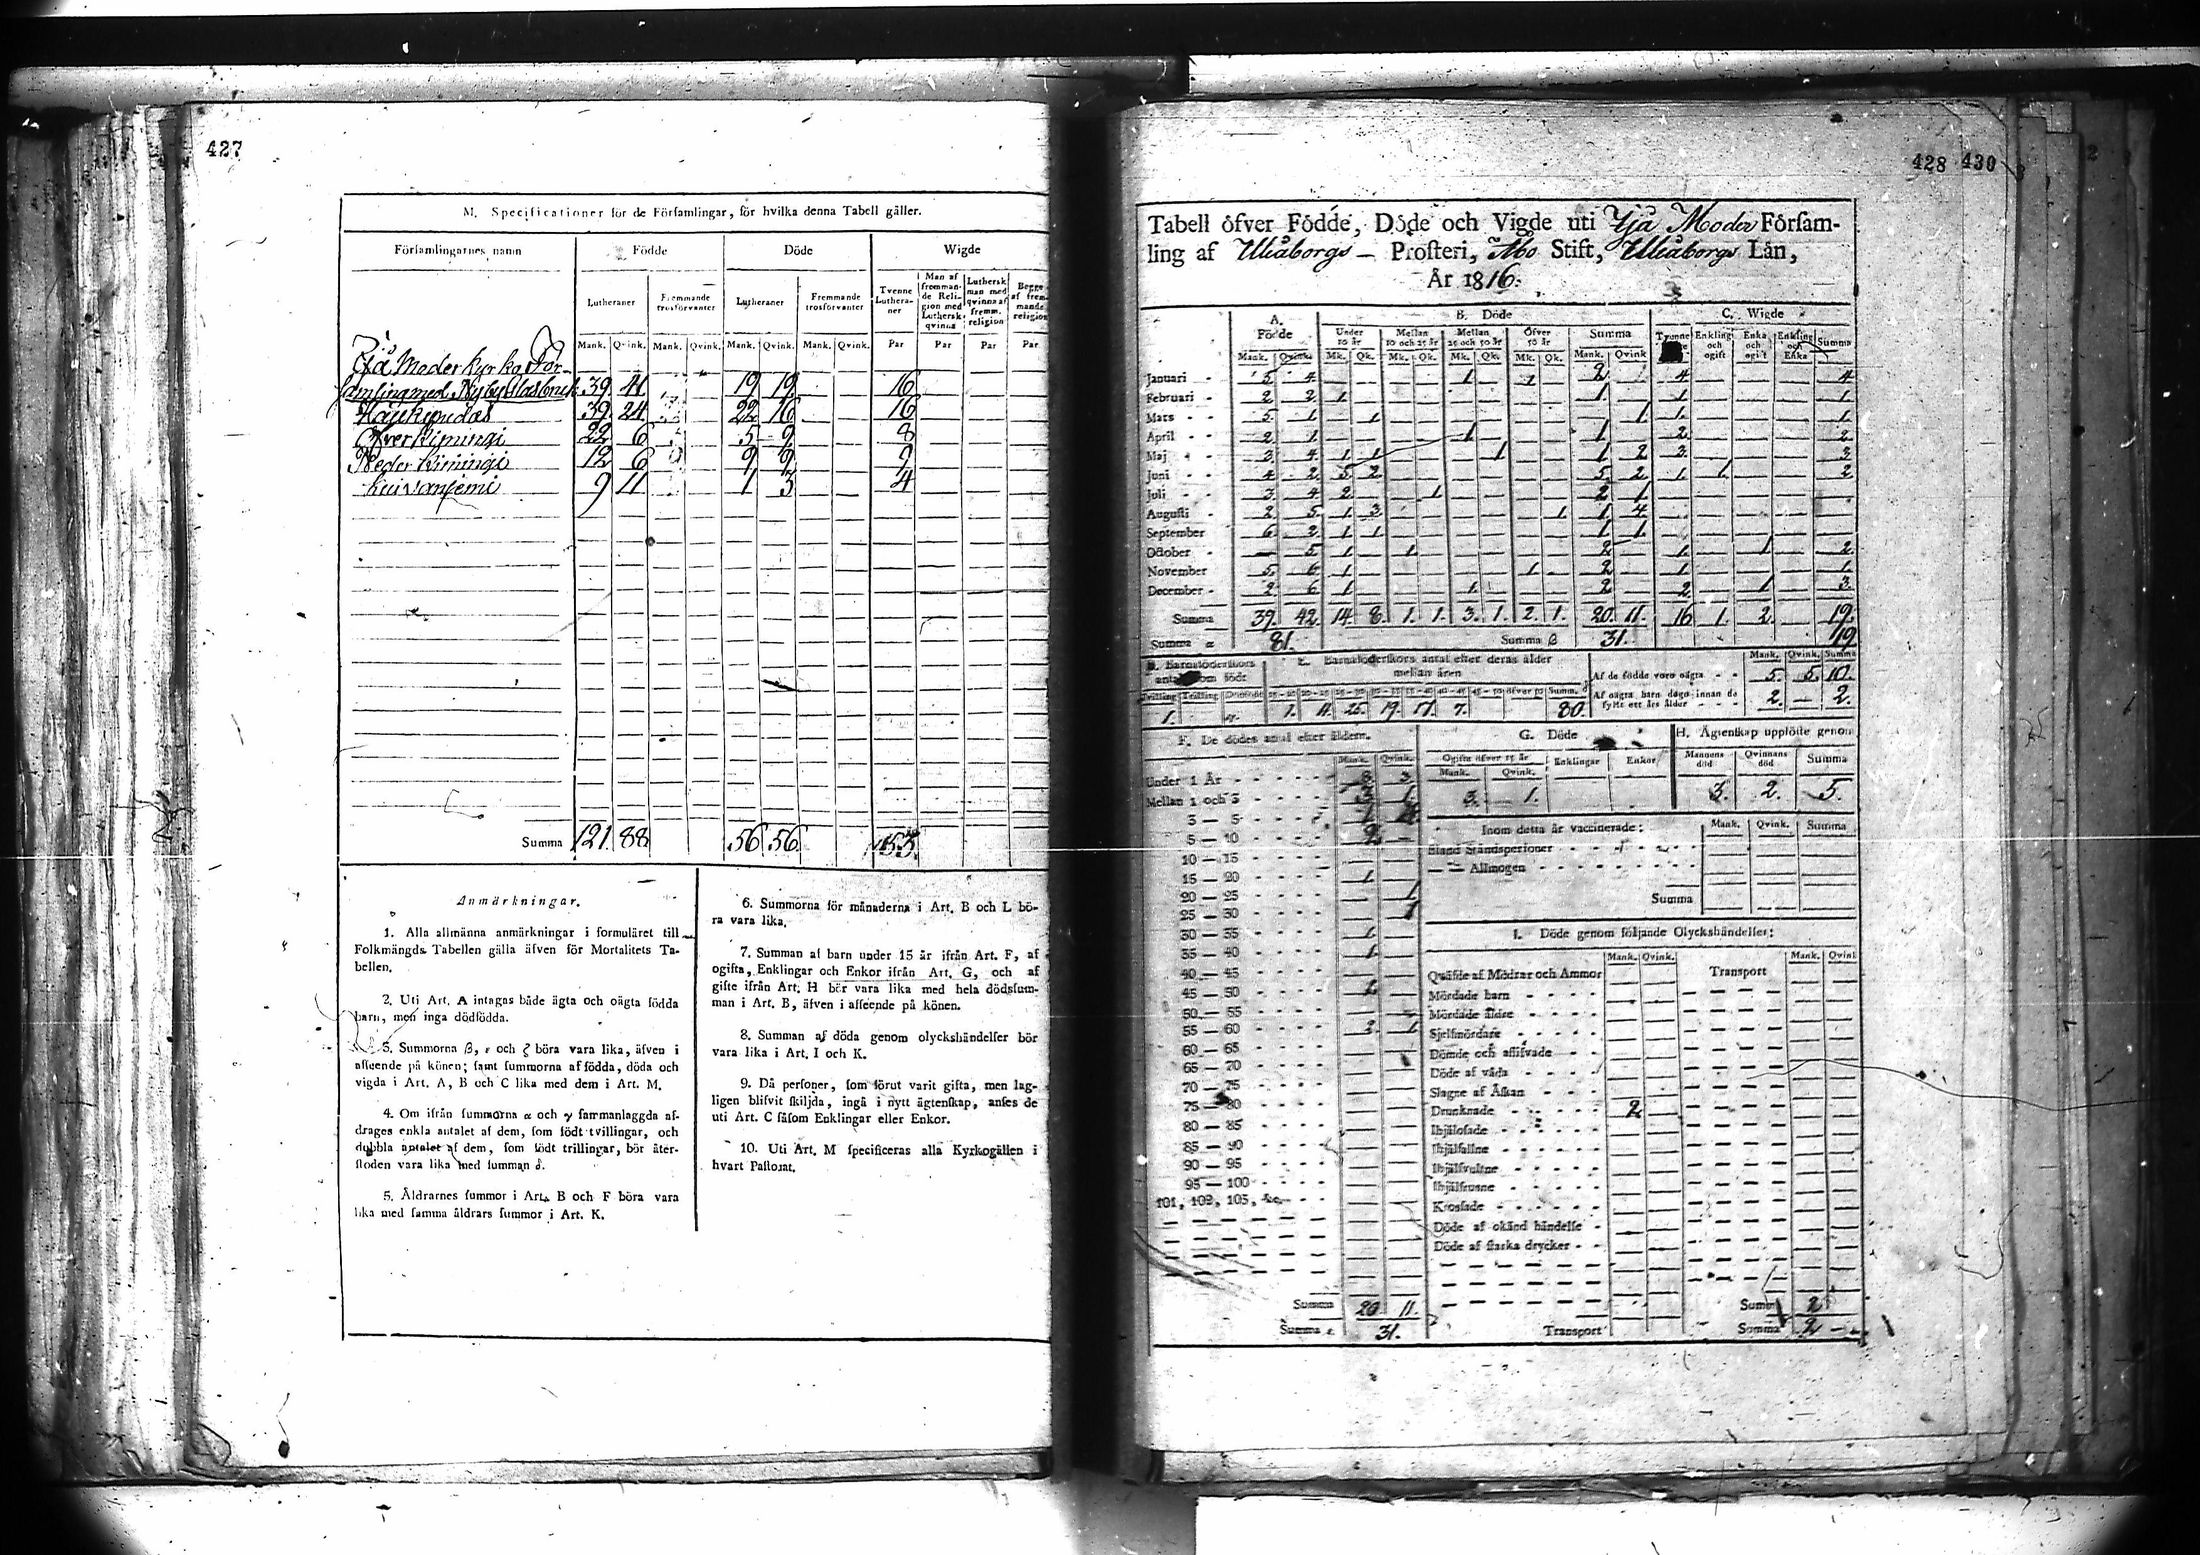 427
M. Specificationer för de Församlingar, för hvilka denna Tabell gäller.
Församlingarnes namn Födde Döde Wigde
Lutheraner Fremmande trosförvanter Lutheraner Fremmande trosförvanter Tvenne Lutheraner Man af fremmande Religion med Luthersk qvinna Luthersk man med qvinna af fremm. religion Begge af fremmande religion
Mank. Qvink. Mank. Qvink. Mank. Qvink. Mank. Qvink. Par Par Par Par
Ijå Moder kyrko För-
samling med Nyby Glasbruk 39 41 19 19 16
Haukipudas 39 24 22 16 16
Öfver Kiimingi 22 6 5 9 8
Neder Kiimingi 12 6 9 9 9
Kuivaniemi 9 11 1 3 4
Summa 121 88 56 56 53
Anmärkningar.
1. Alla allmänna anmärkningar i formuläret till
Folkmängds Tabellen gälla äfven för Mortalitets Ta-
bellen.
2. Uti Art. A intagas både ägta och oägta födda
barn, men inga dödfödda.
3. Summorna β, ε och ζ böra vara lika, äfven i
afseende på könen; samt summorna af födda, döda och
vigda i Art. A, B och C lika med dem i Art. M.
4. Om ifrån summorna α och γ sammanlaggda af-
drages enkla antalet af dem, som födt tvillingar, och
dubbla antalet af dem, som födt trillingar, bör åter-
stoden vara lika med summan δ.
5. Åldrarnes summor i Art. B och F böra vara
lika med samma åldrars summor i Art. K.
6. Summorna för månaderna i Art. B och L bö-
ra vara lika.
7. Summan af barn under 15 år ifrån Art. F, af
ogifta, Enklingar och Enkor ifrån Art. G, och af
gifte ifrån Art. H bör vara lika med hela dödssum-
man i Art. B, äfven i afseende på könen.
8. Summan af döda genom olyckshändelser bör
vara lika i Art. I och K.
9. Då personer, som förut varit gifta, men lag-
ligen blifvit skiljda, ingå i nytt ägtenskap, anses de
uti Art. C såsom Enklingar eller Enkor.
10. Uti Art. M specificeras alla Kyrkogällen i
hvart Pastorat.
428 430
Tabell öfver Födde, Döde och Vigde uti Ijå Moder Försam-
ling af Uleåborgs Prosteri, Åbo Stift, Uleåborgs Län,
År 1816.
A. Födde B. Döde C. Wigde
Under 10 år Mellan 10 och 25 år Mellan 25 och 50 år Öfver 50 år Summa Tvenne Enkling och ogift Enka och ogift Enkling och Enka Summa
Mank. Qvink. Mk. Qk. Mk. Qk. Mk. Qk. Mk. Qk. Mank. Qvink.
Januari 5 4 1 1 2 4 4
Februari 2 2 1 1 1 1
Mars 5 1 1 1 1 1
April 2 1 1 1 2 2
Maj 3 4 1 1 1 1 2 3 3
Juni 4 2 5 2 5 2 1 1 2
Juli 3 4 2 1 2 1
Augusti 2 5 1 3 1 1 4
September 6 2 1 1 1 1
October 5 1 1 2 1 1 2
November 5 6 1 1 2 1 1
December 2 6 1 1 2 2 1 3
Summa 39. 42. 14. 8. 1. 1. 3. 1. 2. 1. 20. 11. 16 1. 2. 19.
Summa α 81. Summa β 31. 19
D. Barnsföderskors antal som födt
Tvilling Trilling Dödfödt
1.
E. Barnsföderskors antal efter deras ålder mellan åren
15—20 20—25 25—30 30—35 35—40 40—45 45—50 öfver 50 Summa δ
1. 11. 25. 19. 17. 7. 80.
Mank. Qvink. Summa
Af de födde voro oägta 5. 5. 10.
Af oägta barn dogo innan de
fyllt ett års ålder 2. — 2.
F. De dödes antal efter åldern.
Mank. Qvink.
Under 1 År
Mellan 1 och 3
3 — 5
5 — 10 2
10 — 15
15 — 20 1
20 — 25 1
25 — 30 1
30 — 35 1
35 — 40 1
40 — 45
45 — 50
50 — 55
55 — 60
60 — 65
65 — 70
70 — 75
75 — 80
80 — 85
85 — 90
90 — 95
95 — 100
101, 102, 105, &c.
Summa 20 11.
Summa ε 31.
G. Döde
Ogifte öfver 15 år Enklingar Enkor
Mank. Qvink.
3. 1.
H. Ägtenskap upplöste genom
Mannens död Qvinnans död Summa
3. 2. 5.
Inom detta år vaccinerade: Mank. Qvink. Summa
Bland Ståndspersoner
Allmogen
Summa
I. Döde genom följande Olyckshändelser:
Mank. Qvink. Mank. Qvink
Qväfde af Mödrar och Ammor Transport
Mördade barn
Mördade äldre
Sjelfmördare
Dömde och aflifvade
Döde af våda
Slagne af Åskan
Drunknade 2
Ihjälosade
Ihjälfallne
Ihjälsvultne
Ihjälfrusne
Krossade
Döde af okänd händelse
Döde af starka drycker
Summa 2
Transport Summa 2